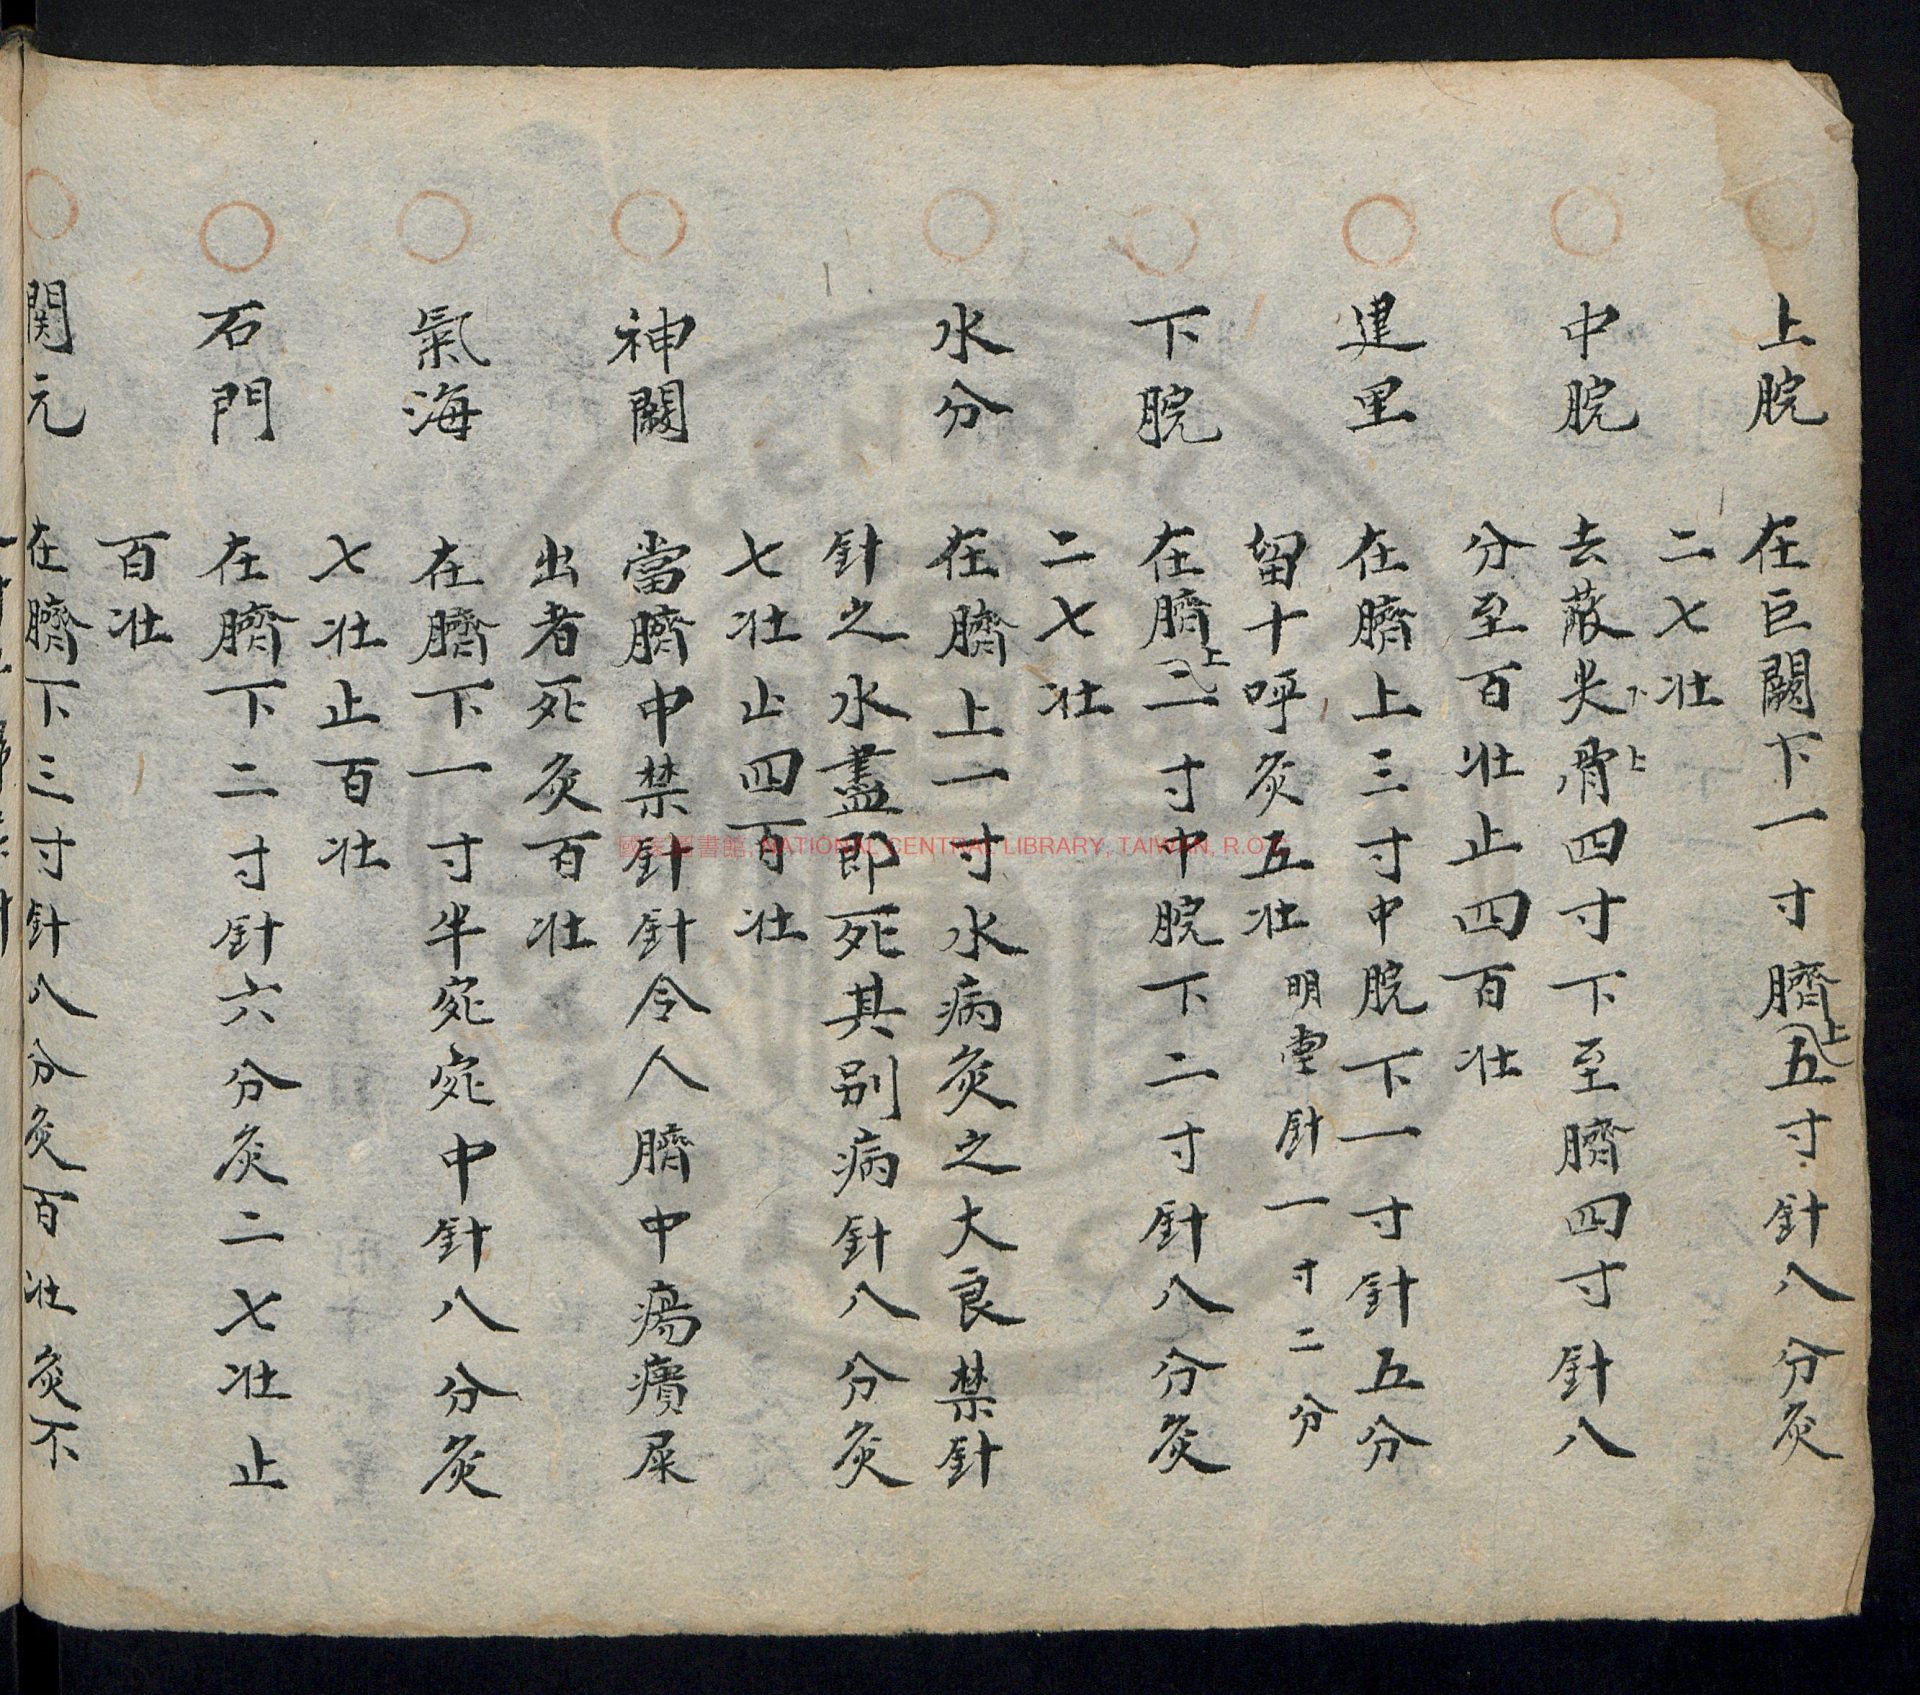 上脘 在巨闕下一寸臍上五寸針八分灸
二七壯
中脘 去蔽尖骨四寸下至臍四寸針八
下 上
分至百壯止四百壯
建里 在臍上三寸中脘下一寸針五分
留十呼灸五壯 明堂針一寸二分
下脘 在臍上二寸中脘下二寸針八分灸
二七壯
水分 在臍上一寸水病灸之大良禁針
針之水盡即死其別病針八分灸
七壯止四百壯
神闕 當臍中禁針針令人臍中瘍潰屎
出者死灸百壯
氣海 在臍下一寸半宛宛中針八分灸
七壯止百壯
石門 在臍下二寸針六分灸二七壯止
百壯
関元 在臍下三寸針八分灸百壯灸不
國家圖書館, NATIONAL CENTRAL LIBRARY, TAIWAN, R.O.C.